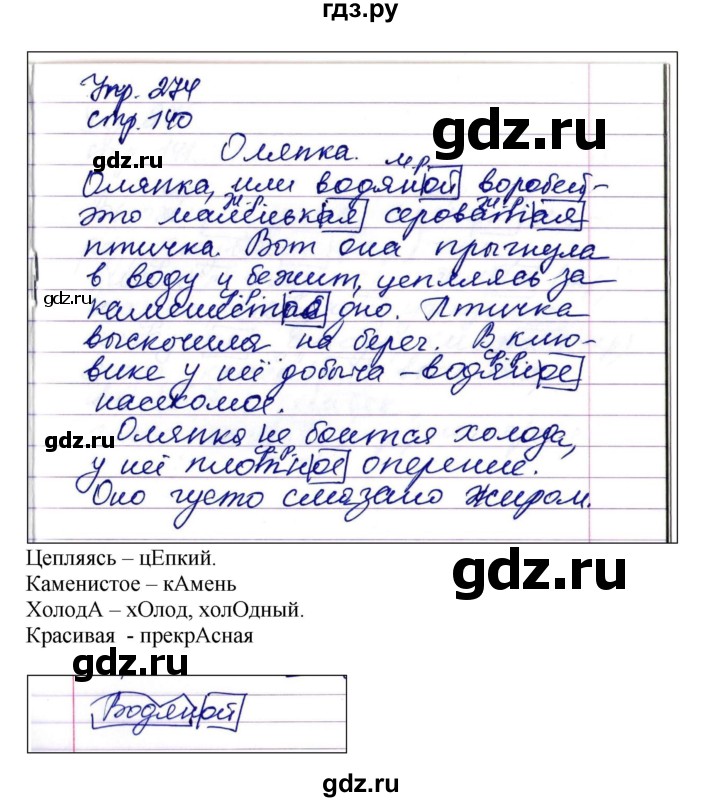 гдз.ру
Упр. 274
стр. 140
gdz.ru
gdz.ru
Оляпка.
м.р.
Оляпка, или водяной воробей –
ж.р. ж.р.
это маленькая сероватая
птичка. Вот она прыгнула
в воду и бежит, цепляясь за
gdz.ru
с.р.
каменистое дно. Птичка
gdz.ru
выскочила на берег. В клю-
с.р.
вике у неё добыча – водяное
насекомое.
gdz.ru
Оляпка не боится холода,
с.р.
у неё плотное оперение.
Оно густо смазано жиром.
Цепляясь – цЕпкий.
Каменистое – кАмень
ХолодА – хОлод, холОдный.
Красивая - прекрАсная
gdz.ru
gdz.ru
gdz.ru
Водяной
gdz.ru